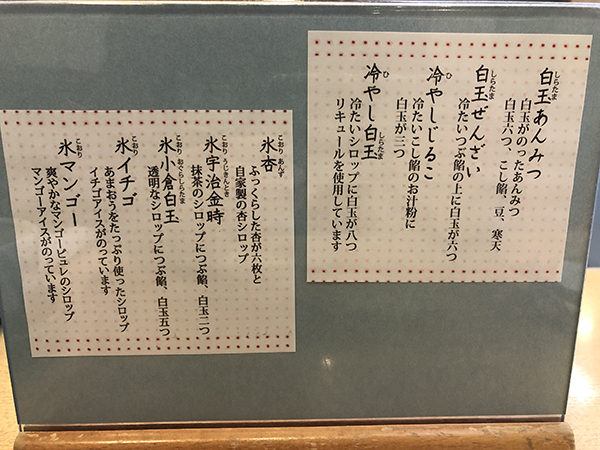 白玉あんみつ
白玉がのったあんみつ
白玉六つ、こし餡、豆、寒天
白玉ぜんざい
冷たいつぶ餡の上に白玉が六つ
冷やしじるこ
冷たいこし餡のお汁粉に
白玉が三つ
冷やし白玉
冷たいシロップに白玉が八つ
リキュールを使用しています
氷杏
ふっくらした杏が六枚と
自家製の杏シロップ
氷宇治金時
抹茶のシロップにつぶ餡、白玉二つ
氷小倉白玉
透明なシロップにつぶ餡、白玉五つ
氷イチゴ
あまおうをたっぷり使ったシロップ
イチゴアイスがのっています
氷マンゴー
爽やかなマンゴーピュレのシロップ
マンゴーアイスがのっています